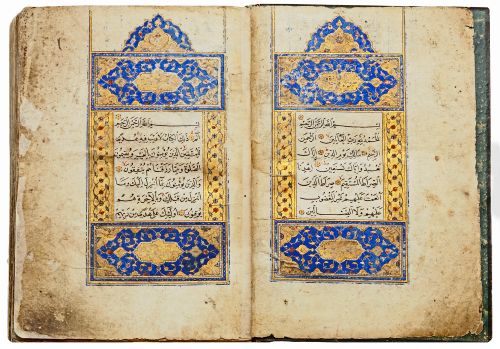 بسم الله الرحمن الرحيم
الحمد لله رب العالمين الرحمن
الرحيم ملك يوم الدين اياك
نعبد واياك نستعين اهدنا
الصراط المستقيم صراط الذين
انعمت عليهم غير المغضوب
عليهم ولا الضالين
بسم الله الرحمن الرحيم
الم ذلك الكتاب لا ريب فيه هدى
للمتقين الذين يؤمنون بالغيب ويقيمون
الصلوة ومما رزقناهم ينفقون
والذين يؤمنون بما انزل اليك وما
انزل من قبلك وبالاخرة هم
يوقنون اولئك على هدى من ربهم